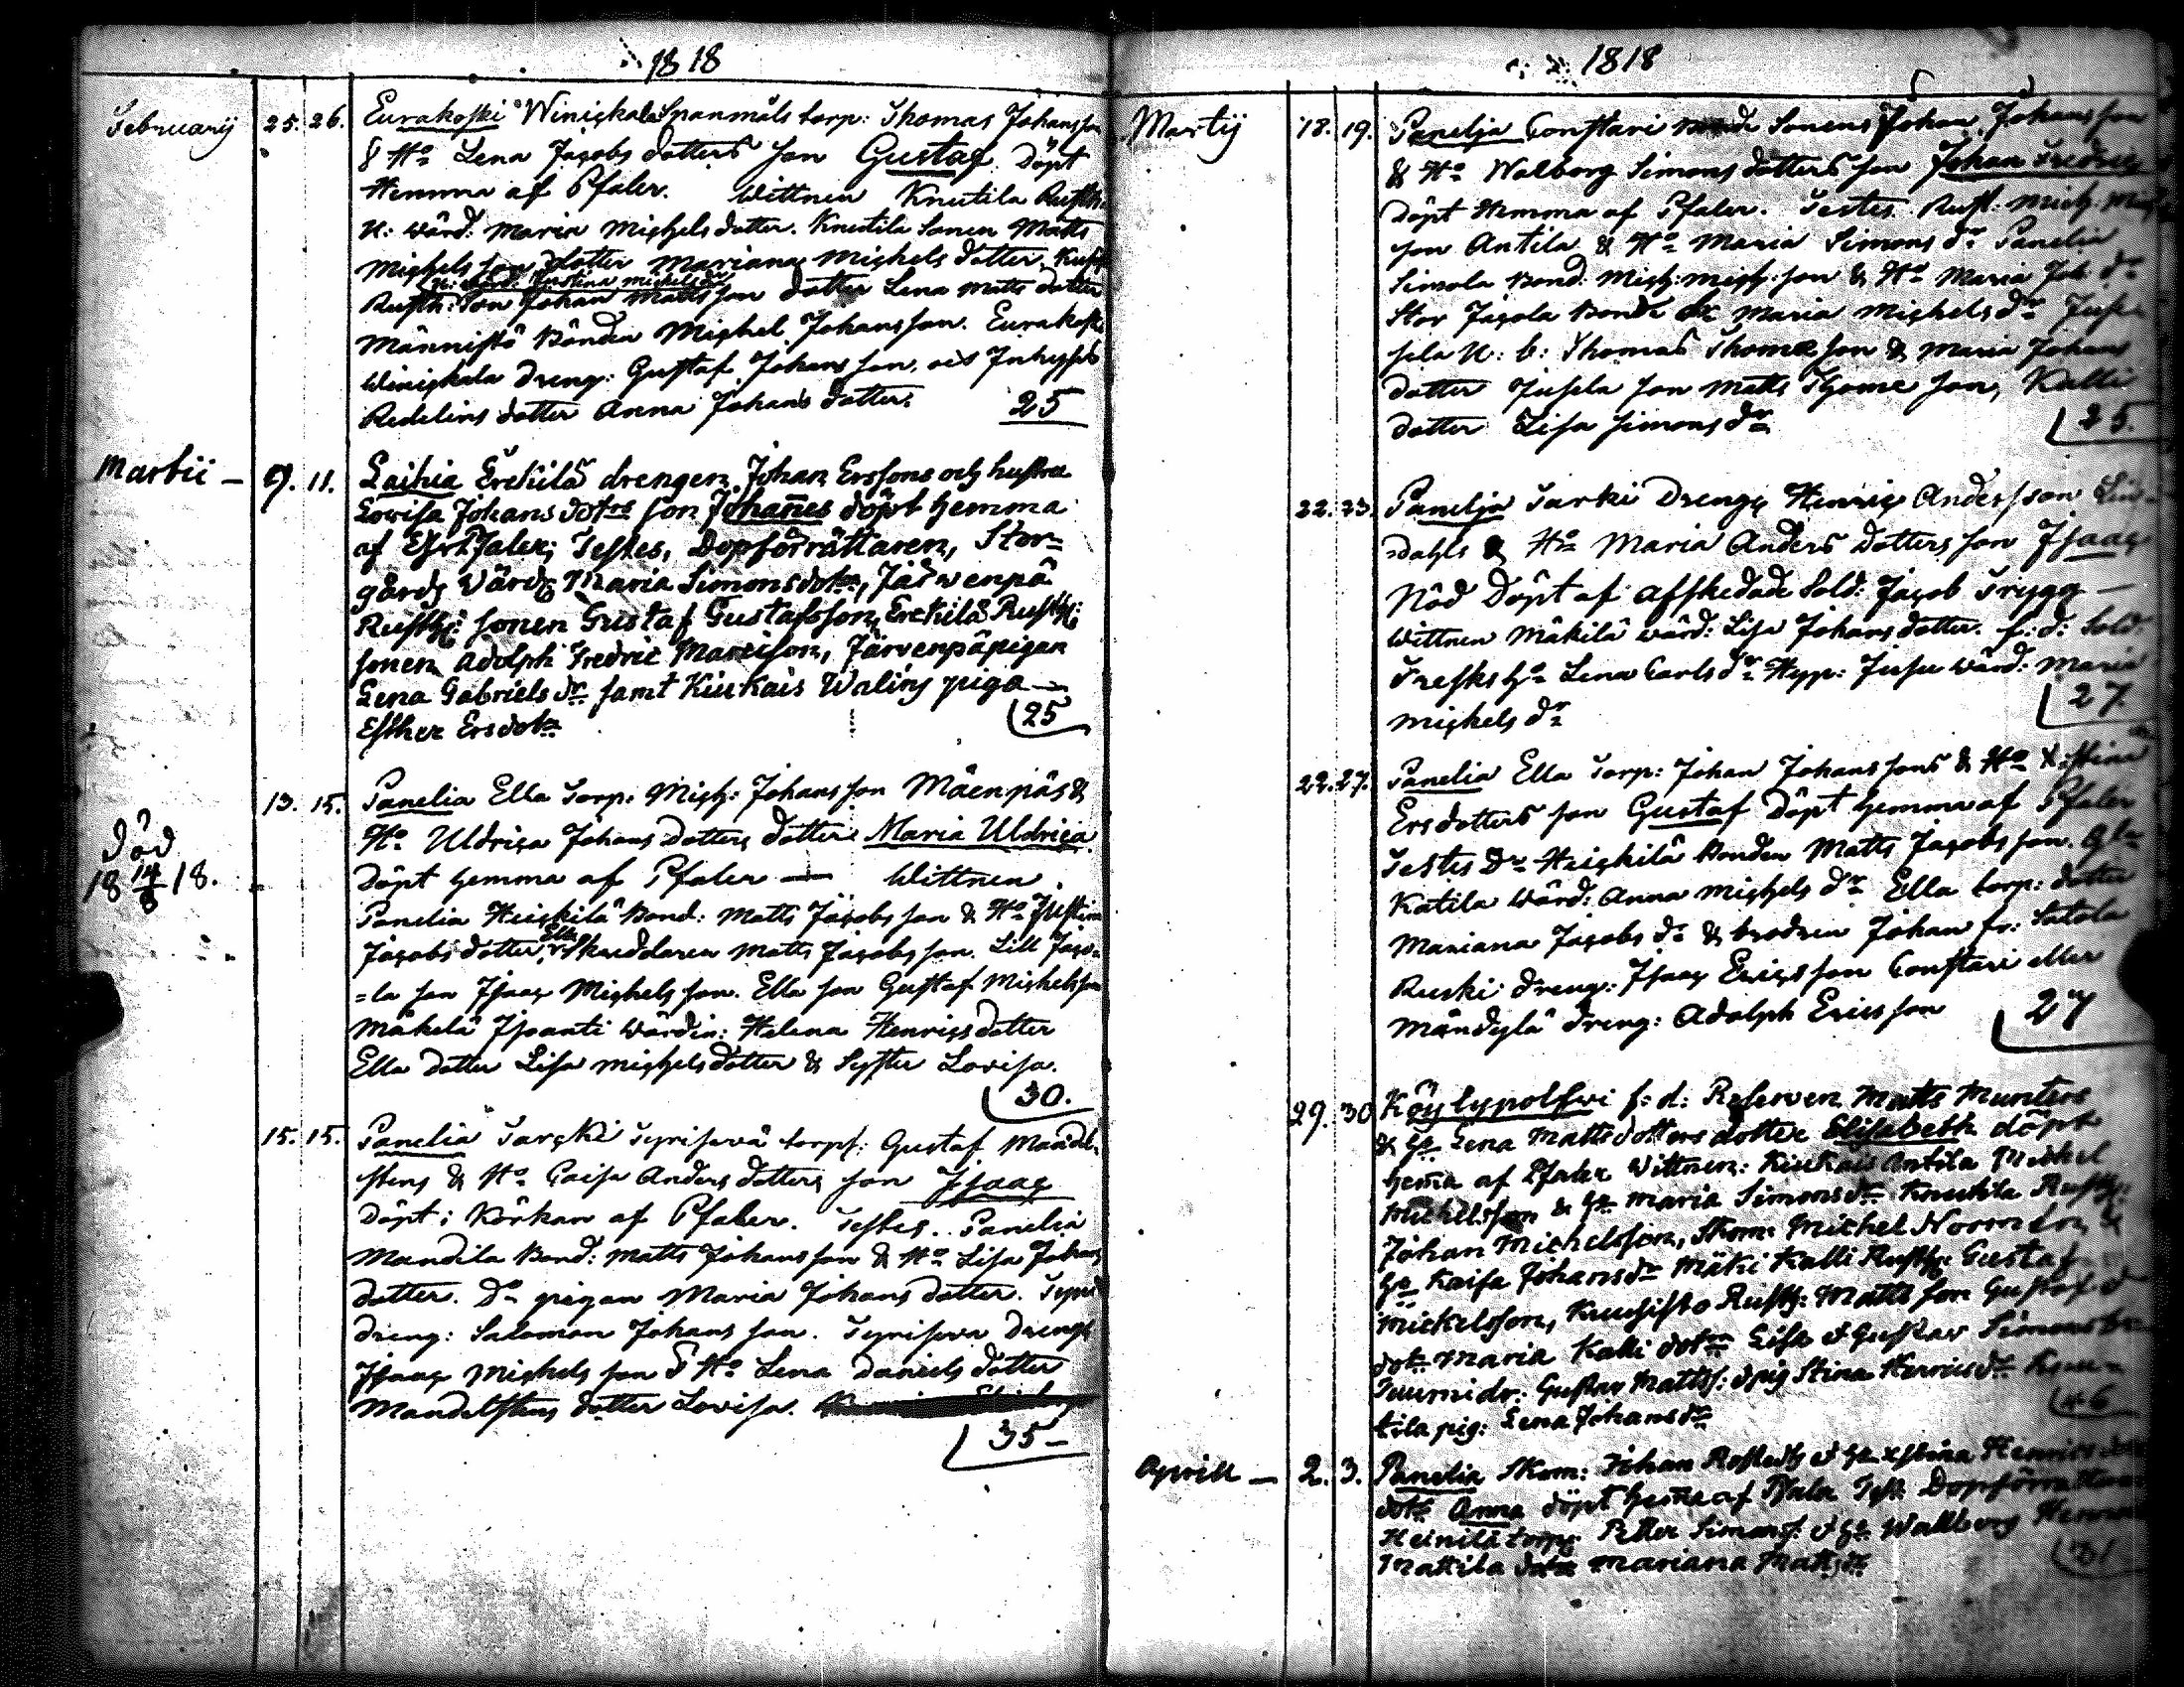 1818
February 25. 26. Eurakoski Winickala Spanmåls torp: Thomas Johansson
& Ho Lena Jacobs dotters son Gustaf Döpt
Hemma af Pfaler. Wittnen Knutila Rusth:
U: wärd: Maria Michels dotter. Knutila Sonen Matts
Michels son dotter Mariana Michels dotter
Rusth: Son Johan Matts son dotter Lena Matts dotter
Männistö Bonden Michel Johansson. Eurakoski
Winickala Dreng: Gustaf Johansson, och Inhyses
Redelins dotter Anna Johans dotter.
25
Martii - 9. 11. Laihia Erckilä drengen Johan Erssons och hustru
Lovisa Johans dotrs son Johañes döpt hemma
af Pfaler; Testes, Dopförrättaren, Stor-
gårds Värd: Maria Simonsdotr, Järwenpä
Rusth: sonen Gustaf Gustafsson, Erckilä Rusth:
sonen Adolph Fredric Maurisson, Järvenpäpigan
Lena Gabriels dr samt Kiukais Walins piga -
Esther Ersdotr
25
13. 15. Panelia Ella Torp: Mich: Johansson Mäenpäs &
Ho Uldrica Johans Dotters dotter Maria Uldrica
Döpt hemma af Pfaler — Wittnen
död
18 14/8 18.
Panelia Heickilä Bond: Matts Jacobs son & Ho Justina
Jacobs dotter, Ella Skreddaren Matts Jacobs son. Lill Jaco-
=la son Isaac Michels son. Ella son Gustaf Michelsson
Mäkelä Isoanti Wärdin: Helena Henrics dotter
Ella dotter Lisa Michels dotter & Syster Lovisa.
30.
15. 15. Panelia Tarcki Torp: Gustaf Mandel-
stens & Ho Caisa Anders dotters son Isaac
Döpt i Körkan af Pfaler. Testes. Panelia
Mandila Bond: Matts Johansson & Ho Lisa Johans
dotter. Do pigan Maria Johans dotter.
Dreng: Salomon Johans son. Dreng:
Isaac Michels son & Ho Lena Daniels dotter
Mandelstens dotter Lovisa.
35 -
1818
Martij 18. 19. Panelia Constari Sonens Johan Johansson
& Ho Walborg Simons dotters son Johan Fredric
Döpt Hemma af Pfaler. Testes Rust: Mich: Mich
son Antila & Ho Maria Simons dr Panelia
Simola Bond: Mich: Mich: son & Ho Maria Joh: dr
Stor Jacola Bond Maria Michels dr
U: b: Thomas Thomæ son & Maria Johans
dotter Jusela son Matts Thomæ son, Kalli
dotter Lisa Simons dr
25.
22. 23. Panelja Tarki Dreng Henric Andersson Lin-
dahls & Ho Maria Anders Dotters son Isaac
Nöd Döpt af affskedade Sold: Jacob Trygg —
Wittnen Mäkilä wärd: Lisa Johans dotter. f: d: Sold:
Fresks Ho Lena Carls dr Hyp: Jusu wärd: Maria
Michels dr
27.
22. 27. Panelia Ella Torp: Johan Johanssons & Ho Xstina
Ersdotters son Gustaf Döpt hemma af Pfaler
Testes Do Heickilä Bonden Matts Jacobsson.
Katila Wärd: Anna Michels dr Ella torp: dotter
Mariana Jacobs dr & brodren Johan
Ruski dreng: Isaac Ericsson Constari eller
Mändylä dreng: Adolph Ericsson
27
29. 30 Köylypolswi f: d: Reserven Matts Munters
& Hu Lena Mattsdotters dotter Elisabeth döpt
hema af Pfaler Wittnen: Kiukais Antila Michel
Michelsson & Hu Maria Simonsdr Knutila Rusth:
Johan Michelsson, Skom: Michel
Hu Kaisa Johansdr Mäki Kalli Rusth: Gustaf
Mickelsson, Kuusisto Rusth: Matts son Gustaf &
dotr Maria Kalli dotr Lisa & Gustav Simons
Tuumi dr: Gustav Matts: & pig Stina Henricsdr Knu-
tila pig: Lena Johansdr
46
Aprill - 2. 3. Panelia Skom: Johan & Hu Xstina Henrics
dotr Anna döpt hema af Pfaler Dopförrättaren
Heinilä torp: Petter Simons: & Hu Wallborg
Mattila dotr Mariana Matts dr
31